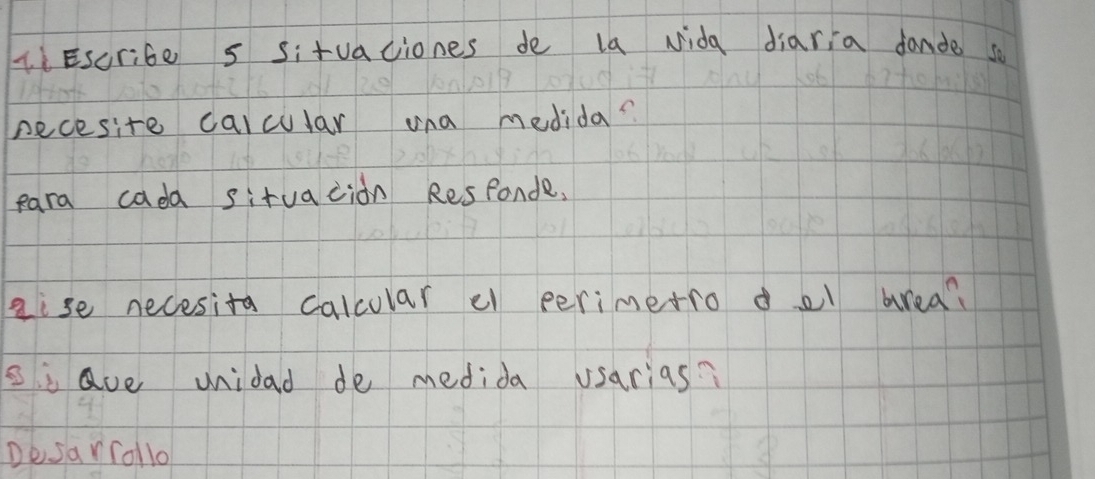 1¿ Escribe 5 situaciones de la vida diaria donde se
necesite calcular una medida?
para cada situación Responde,
2¿ se necesita calcular el perimetro o el area?
3¿ Que unidad de medida usarias?
Desarrollo